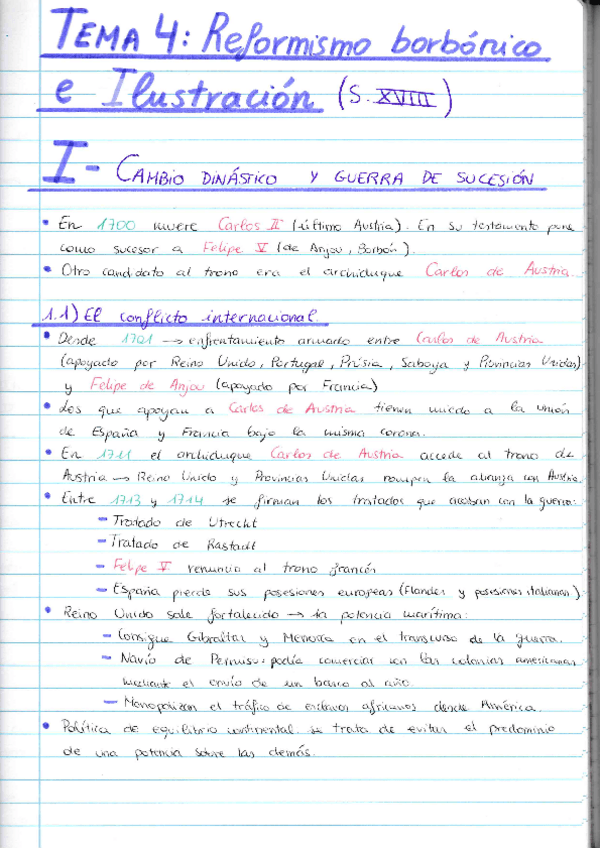 TEMA 4: Reformismo borbónico
e Ilustración (S. XVIII)
I- CAMBIO DINÁSTICO Y GUERRA DE SUCESIÓN
• En 1700 muere Carlos II (último Austria). En su testamento pone
como sucesor a Felipe V (de Anjou, Borbón).
• Otro candidato al trono era el archiduque Carlos de Austria.
1.1) El conflicto internacional.
• Desde 1701 → enfrentamiento armado entre Carlos de Austria
(apoyado por Reino Unido, Portugal, Prusia, Saboya y Provincias Unidas)
y Felipe de Anjou (apoyado por Francia)
• Los que apoyan a Carlos de Austria tienen miedo a la unión
de España y Francia bajo la misma corona.
• En 1711 el archiduque Carlos de Austria accede al trono de
Austria → Reino Unido y Provincias Unidas rompen la alianza con Austria.
• Entre 1713 y 1714 se firman los tratados que acaban con la guerra:
- Tratado de Utrecht
- Tratado de Rastadt
- Felipe V renuncia al trono francés
- España pierde sus posesiones europeas (Flandes y posesiones italianas).
• Reino Unido sale fortalecido → 1a potencia marítima:
- Consigue Gibraltar y Menorca en el transcurso de la guerra.
- Navío de Permiso: podía comerciar con las colonias americanas
mediante el envío de un barco al año.
- Monopolizan el tráfico de esclavos africanos desde América.
• Política de equilibrio continental: se trata de evitar el predominio
de una potencia sobre las demás.